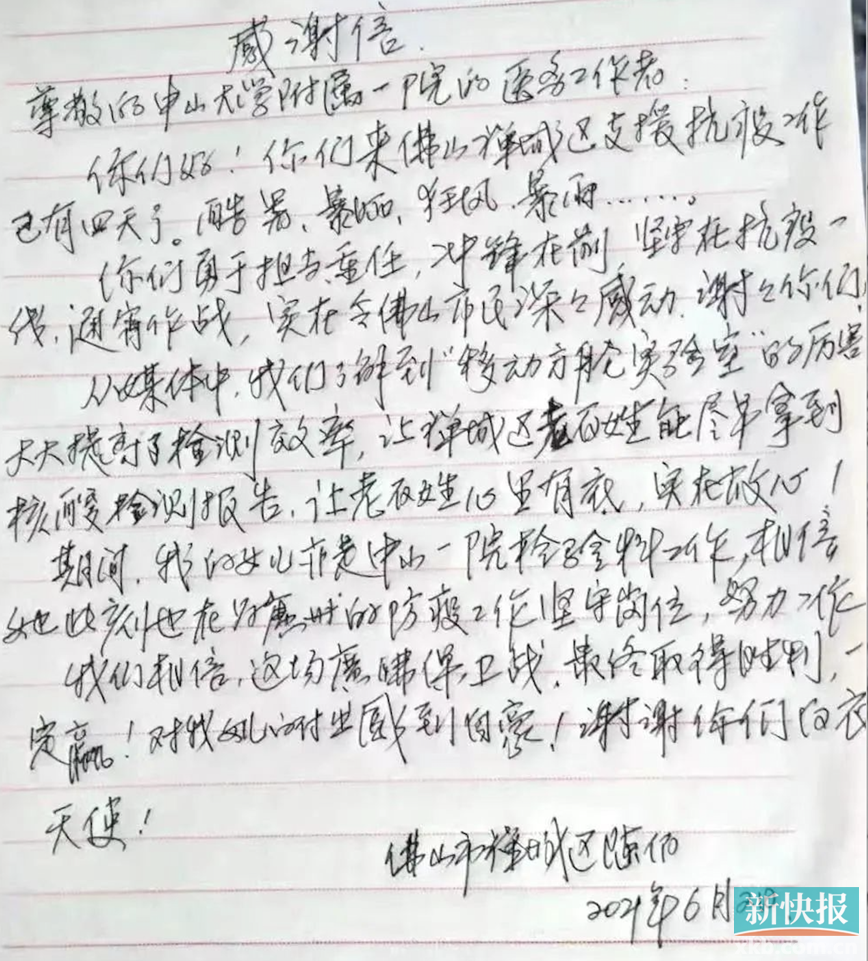 感谢信.
尊敬的中山大学附属一院的医务工作者:
你们好!你们来佛山禅城区支援抗疫工作
已有四天了。酷暑、暴晒、狂风、暴雨……。
你们勇于担当重任,冲锋在前,坚守在抗疫一
线,通宵作战,实在令佛山市民深々感动.谢々你们
从媒体中,我们了解到"移动方舱实验室"的厉害
大大提高了检测效率,让禅城区老百姓能尽早拿到
核酸检测报告,让老百姓心里有底,实在放心!
期间,我的女儿亦是中山一院检验科工作,相信
她此刻也在为广州的防疫工作坚守岗位,努力工作
我们相信,这场广佛保卫战,最终取得胜利,一
定赢!对我女儿的付出感到自豪!谢谢你们白衣
天使!
佛山市禅城区陈伯
2021年6月
新快报
xkb.com.cn